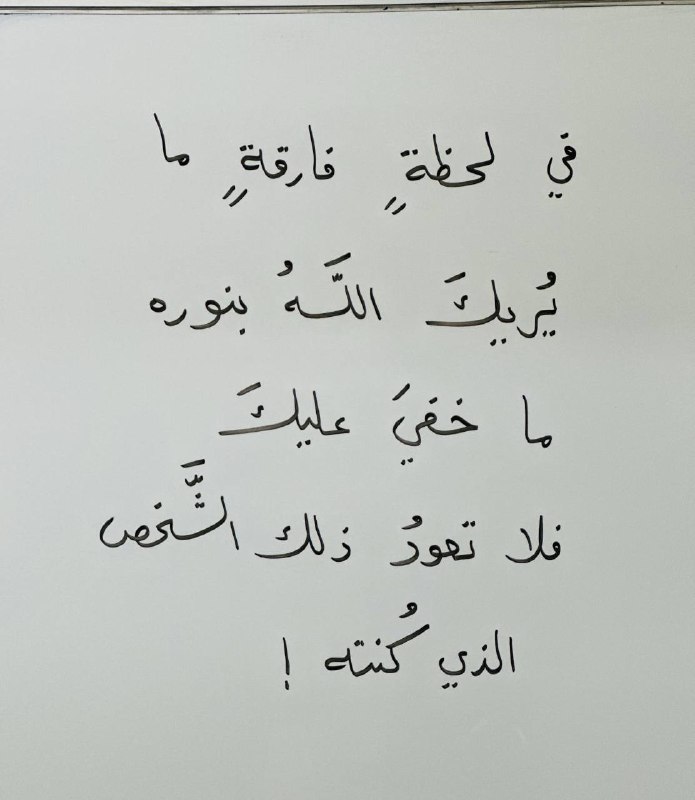 في لحظةٍ فارقةٍ ما
يُريكَ اللَّهُ بنوره
ما خفيَ عليكَ
فلا تعودُ ذلك الشَّخص
الذي كُنته !